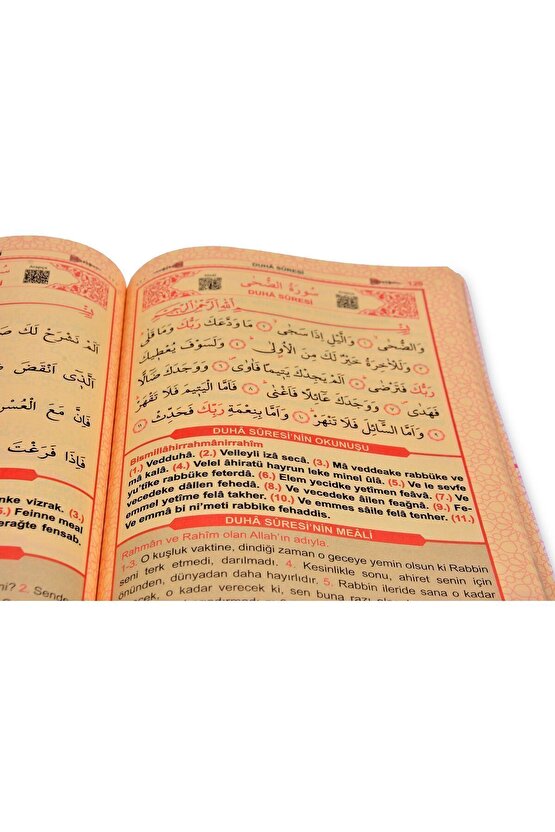 DUHÂ SÛRESİ
128
سُورَةُ الضُّحٰى
DUHÂ SÛRESİ
وَالضُّحٰىۙ ﴿١﴾ وَالَّيْلِ اِذَا سَجٰىۙ ﴿٢﴾ مَا وَدَّعَكَ رَبُّكَ وَمَا قَلٰىۜ
وَلَلْاٰخِرَةُ خَيْرٌ لَكَ مِنَ الْاُو۫لٰىۜ ﴿٤﴾ وَلَسَوْفَ يُعْط۪يكَ
رَبُّكَ فَتَرْضٰىۜ ﴿٥﴾ اَلَمْ يَجِدْكَ يَت۪يمًا فَاٰوٰىۖ ﴿٦﴾ وَوَجَدَكَ ضَٓالًّا
فَهَدٰىۖ ﴿٧﴾ وَوَجَدَكَ عَٓائِلًا فَاَغْنٰىۜ ﴿٨﴾ فَاَمَّا الْيَت۪يمَ فَلَا تَقْهَرْۜ
﴿٩﴾ وَاَمَّا السَّٓائِلَ فَلَا تَنْهَرْۜ ﴿١٠﴾ وَاَمَّا بِنِعْمَةِ رَبِّكَ فَحَدِّثْ ﴿١١﴾
DUHÂ SÛRESİ'NİN OKUNUŞU
Bismillâhirrahmânirrahîm
(1.) Vedduhâ. (2.) Velleyli izâ secâ. (3.) Mâ veddeake rabbüke ve
mâ kalâ. (4.) Velel âhiratü hayrun leke minel ûlâ. (5.) Ve le sevfe
yu'tîke rabbüke feterdâ. (6.) Elem yecidke yetîmen feâvâ. (7.) Ve
vecedeke dâllen fehedâ. (8.) Ve vecedeke âilen feağnâ. (9.) Fe-
emmel yetîme felâ takher. (10.) Ve emmes sâile felâ tenher. (11.)
Ve emmâ bi ni'meti rabbike fehaddis.
DUHÂ SÛRESİ'NİN MEÂLİ
Rahmân ve Rahîm olan Allah'ın adıyla.
1-3. O kuşluk vaktine, dindiği zaman o geceye yemin olsun ki Rabbin
seni terk etmedi, darılmadı. 4. Kesinlikle sonu, ahiret senin için
önünden, dünyadan daha hayırlıdır. 5. Rabbin ileride sana o kadar
verecek ki, sen buna razı
اَلَمْ نَشْرَحْ لَكَ
اَلَّذ۪ٓي اَنْقَضَ
فَاِنَّ مَعَ الْعُسْرِ
فَاِذَا فَرَغْتَ
nke vizrak. (3.)
5.) Feinne meal
erağte fensab.
mi? 2. Sende